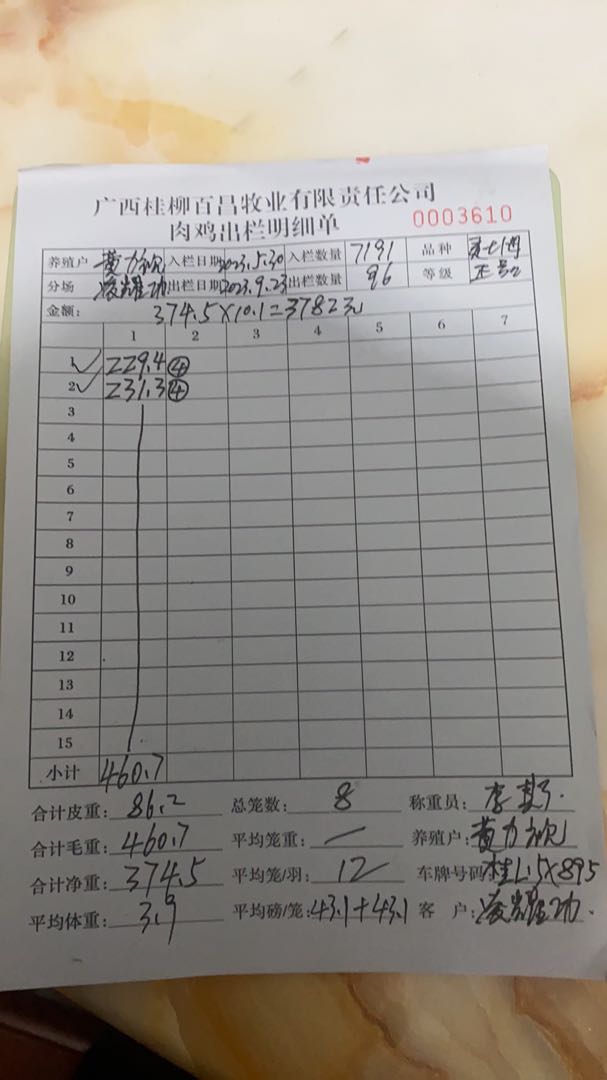 广西桂柳百昌牧业有限责任公司
肉鸡出栏明细单 0003610
养殖户 黄力欢 入栏日期 2023.5.30 入栏数量 7191 品种
分场 凌耀功 出栏日期 2023.9.23 出栏数量 96 等级
金额: 374.5×10.1=3782元
1 2 3 4 5 6 7
1 229.4 ④
2 231.3 ④
3
4
5
6
7
8
9
10
11
12
13
14
15
小计 460.7
合计皮重: 86.2 总笼数: 8 称重员: 李
合计毛重: 460.7 平均笼重: 养殖户: 黄力欢
合计净重: 374.5 平均笼/羽: 12 车牌号码: 桂L.5X895
平均体重: 3.9 平均磅/笼: 43.1+43.1 客 户: 凌耀功